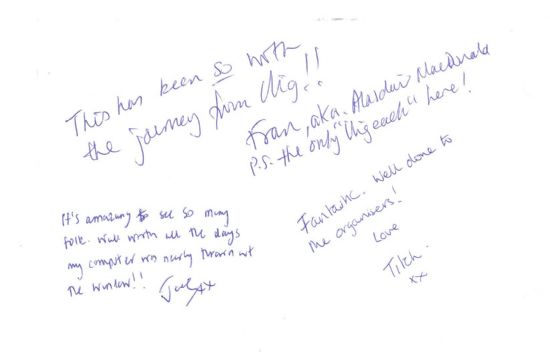 This has been so worth
the journey from Uig!!
Fran, aka. Alasdair MacDonald
P.S. the only "Uigeach" here!
It's amazing to see so many
folk. Well worth all the days
my computer was nearly thrown out
the window!!
xx
Fantastic. Well done to
the organisers!
Love
Tilch.
xx